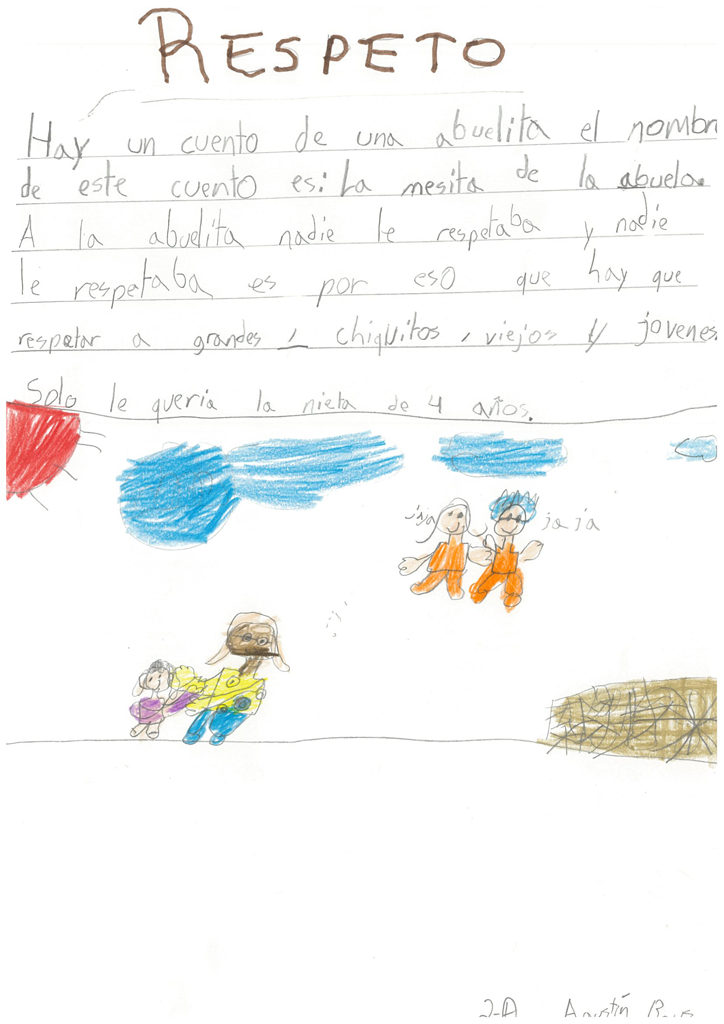 RESPETO
Hay un cuento de una abuelita el nombr
de este cuento es: La mesita de la abuela.
A la abuelita nadie le respetaba y nadie
le respetaba es por eso que hay que
respetar a grandes, chiquitos, viejos y jovenes.
Solo le queria la nieta de 4 años.
jaja ja ja
2-A Agustín